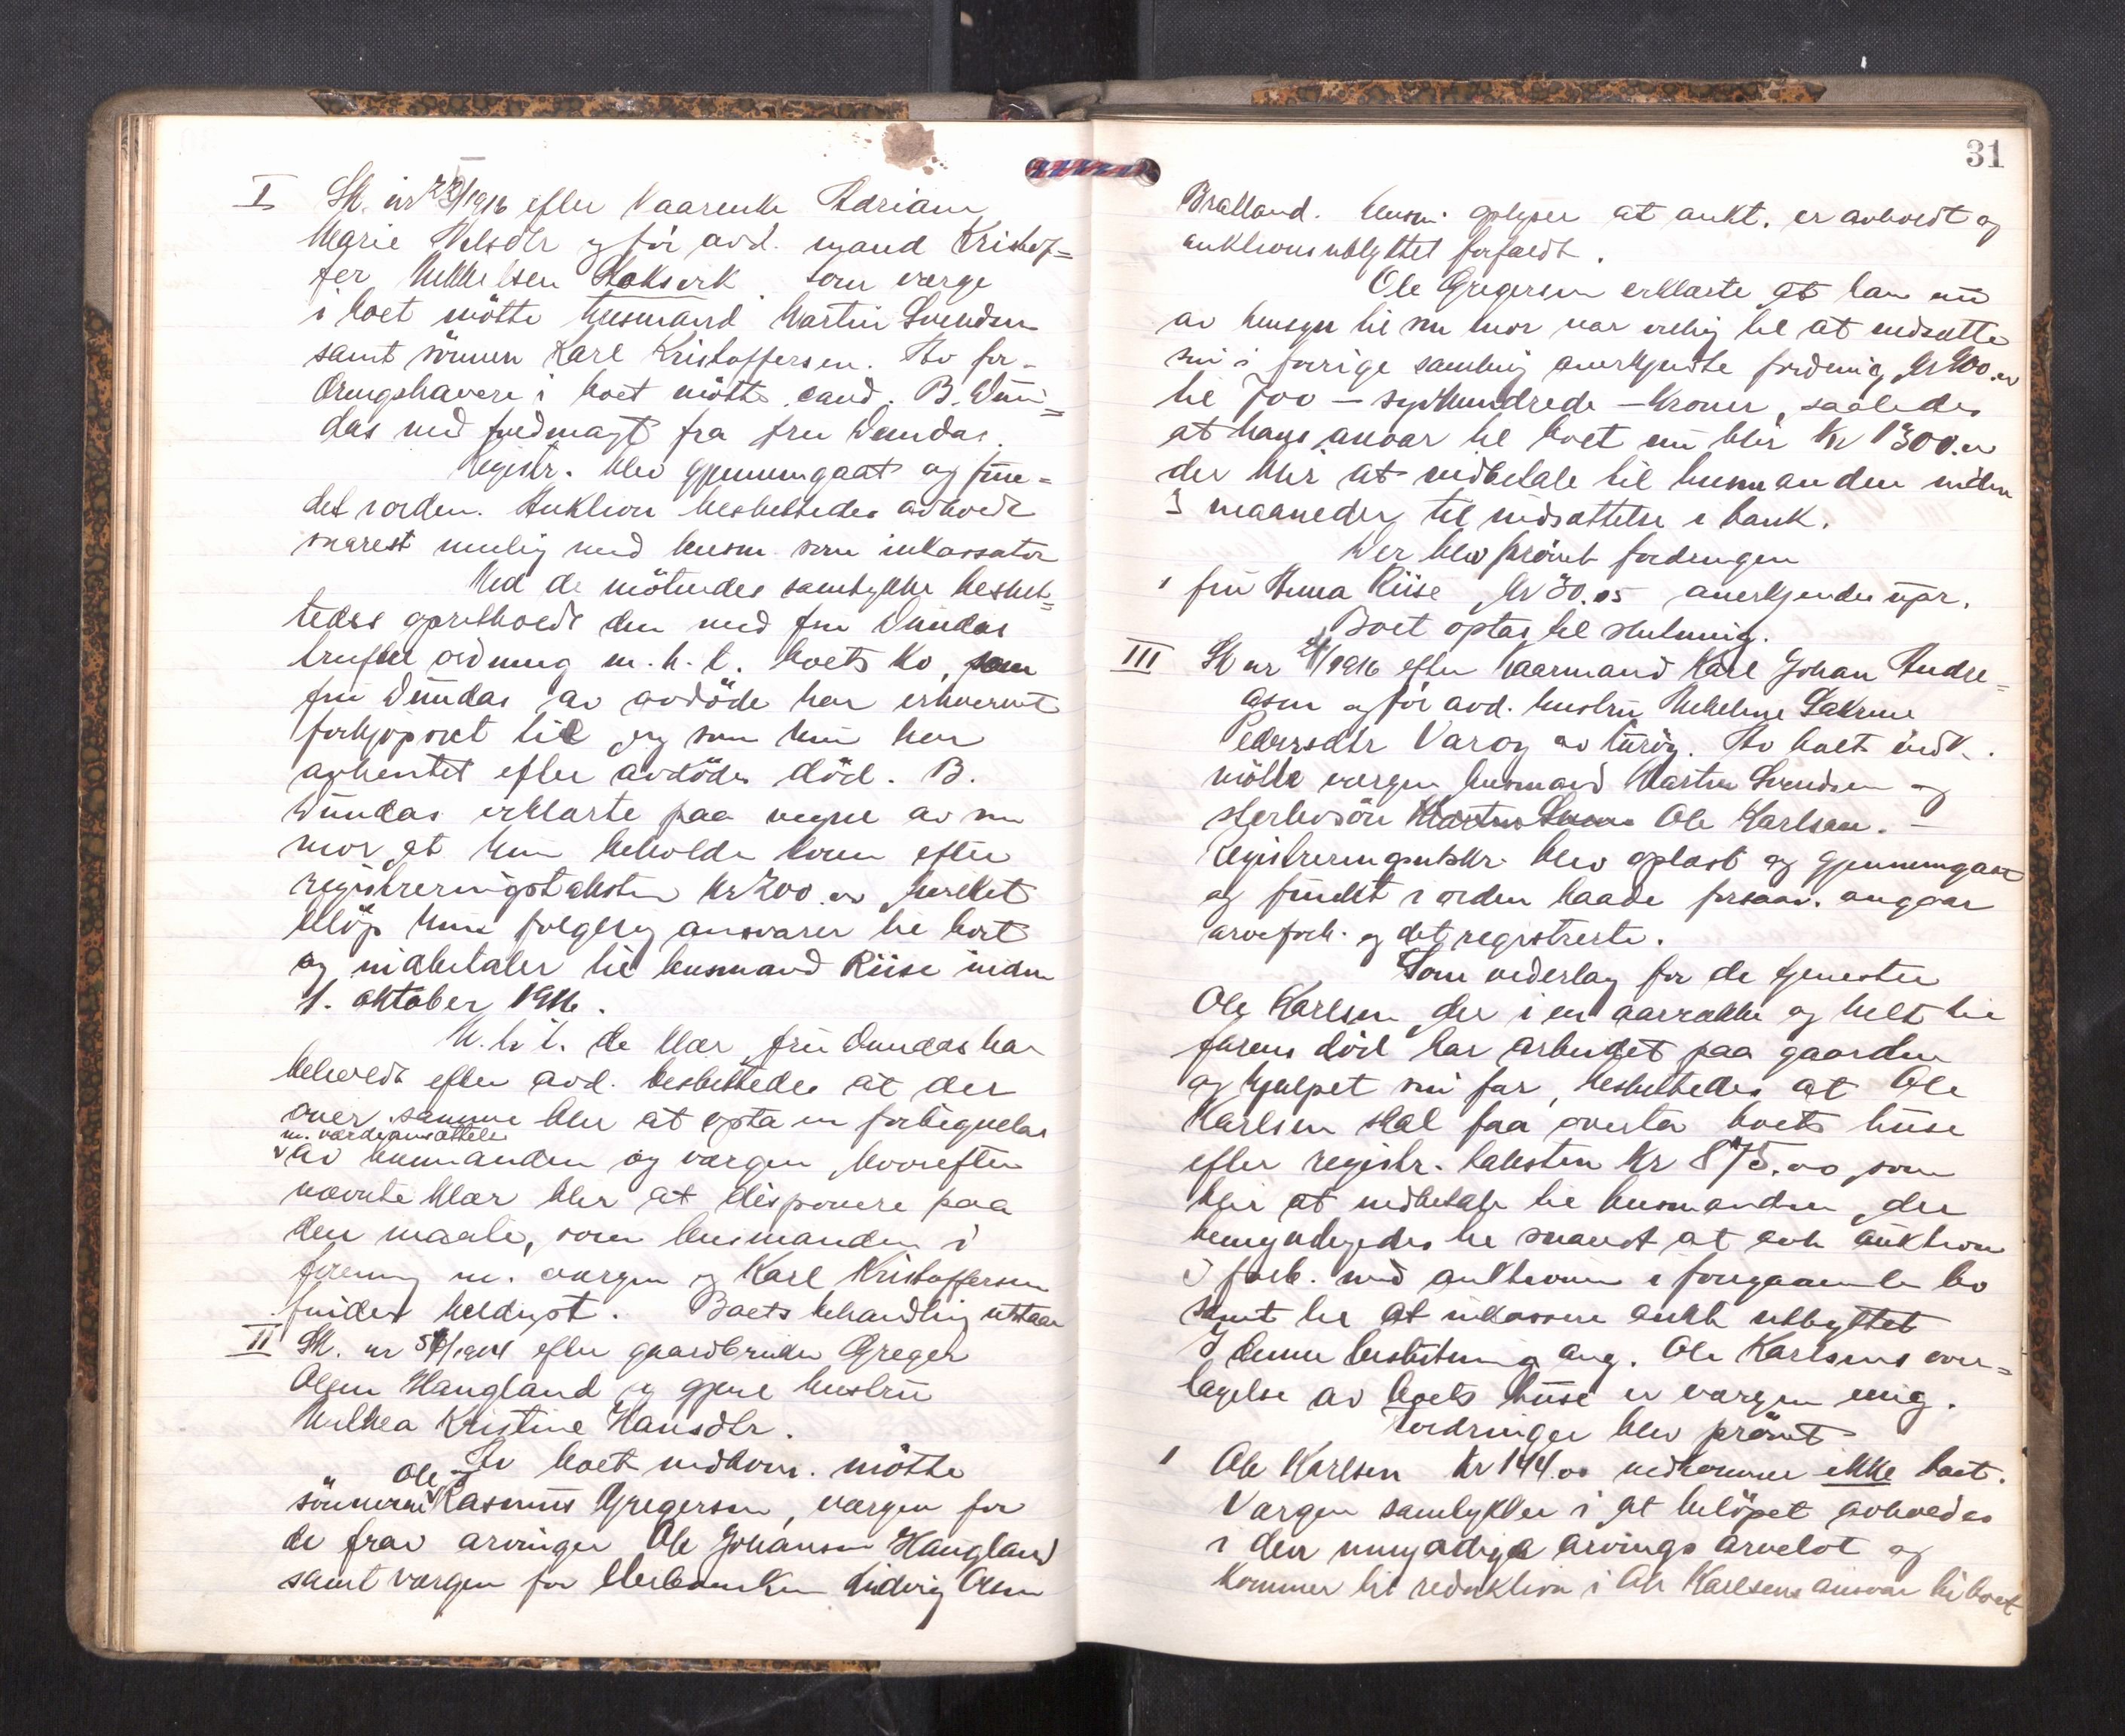 I Sk. nr 22/1916 efter Vaarenke Adriane
Marie Nelsdtr og før avd. mand Kristof=
fer Mikkelsen Stoksvik som værge
i boet mötte husmand Martin Svendsen
samt sönnen Karl Kristoffersen. Av for-
dringshavere i boet mötte cand. B. Dun=
das med fuldmagt fra fru Dundas.
Registr. blev gjennemgaat og fun=
det i orden. Auktion besluttedes avholdt
snarest mulig med husm. som inkassator
Med de mötendes samtykke beslut=
tedes opretholdt den med fru Dundas
trufne ordning m.h.t. boets ko, som
fru Dundas av avdöde har erhvervet
forkjøpsret til og som hun har
avhentet efter avdödes död. B.
Dundas erklærte paa vegne av sin
mor at hun beholder koen efter
registreringstaksten kr 200.00 hvilket
belöp hun følgelig ansvarer til boet
og indbetaler til husmand Riise inden
1. oktober 1916.
M.h.t. de klær fru Dundas har
beholdt efter avd. besluttedes at der
over samme blir at opta en fortegnelse
m. værdiansættelse
av husmanden og værgen hvorefter
nævnte klær blir at disponere paa
den maate, som husmanden i
forening m. værgen og Karl Kristoffersen
finder heldigst. Boets behandling utstaar
II Sk. nr 56/1914 efter gaardbruker Greger
Olsen Haugland og gjenl. hustru
Milkea Kristine Hansdtr.
Av boet vedkom. mötte
Ole og
sönnerne Rasmus Gregersen, værgen for
de frav. arvinger Ole Johansen Haugland
samt værgen for sterboenken Ludvig Olsen
31
Bratland. Husm. oplyser at aukt. er avholdt og
auktionsutbyttet forfaldt.
Ole Gregersen erklærte at han nu
av hensyn til sin mor var villig til at nedsætte
sin i forrige samling anerkjendte fordring, kr 900.00
til 700 – syvhundrede – kroner, saaledes
at hans ansvar til boet nu blir kr 1300.00
der blir at indbetale til husmanden inden
3 maaneder til indsættelse i bank.
Der blev prövet fordringen
1 fru Anna Riise kr 30.05 anerkjendes upr.
Boet optas til slutning.
III Sk nr 21/1916 efter Vaarmand Karl Johan Andre=
asen og før avd. hustru Mekeline Sakrine
Pedersdtr Varøy av Turöy. Av boets vedk.
mötte værgen husmand Martin Svendsen og
sterbosön Ole Karlsen. –
Registreringsutskr. blev oplæst og gjennemgaat
og fundet i orden baade forsaav. angaar
arveforh. og det registrerte.
Som vederlag for de tjenester
Ole Karlsen der i en aarrække og helt til
farens död har arbeidet paa gaarden
og hjulpet sin far, besluttedes at Ole
Karlsen skal faa overta boets huse
efter registr. taksten kr 875.00 som
blir at indbetale til husmanden, der
bemyndigedes til snarest at avh. auktion
i forb. med auktionen i foregaaende bo
samt til at inkassere aukt. utbyttet
I denne beslutning ang. Ole Karlsens over=
tagelse av boets huse er værgen enig.
Fordringer blev prövet
1 Ole Karlsen kr 144.00 vedkommer ikke boet.
Værgen samtykker i at belöpet avholdes
i den umyndige arvings arvelot og
kommer til reduktion i Ole Karlsens ansvar til boet